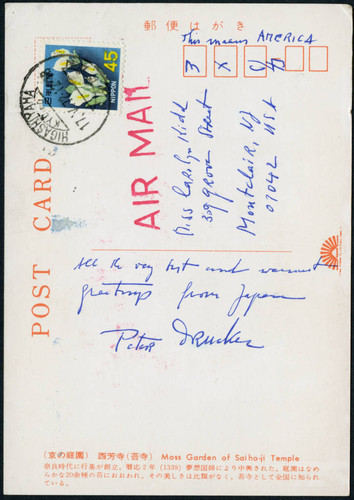 郵便はがき
This means AMERICA
3 X
45
NIPPON
HIGASHIYAMA
17.V
AIR MAIL
POST CARD
Miss Carolyn Kidd
309 Grove Street
Montclair, NJ
07042 USA
All the very best and warmest
greetings from Japan
Peter Drucker
(京の庭園) 西芳寺(苔寺) Moss Garden of Saiho-ji Temple
奈良時代に行基が創立。暦応2年(1339)夢想国師により中興された。庭園はなめ
らかな20余種の苔におおわれ、その美しさは比類がなく、苔寺として全国に知られ
ている。